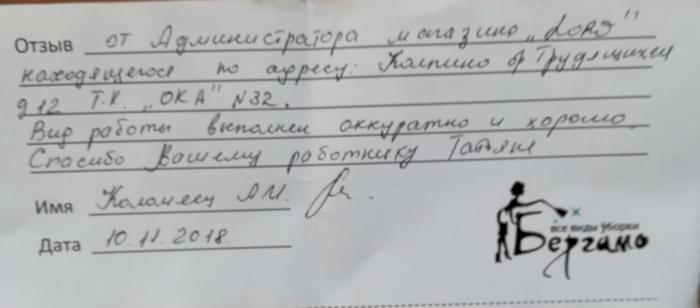 Отзыв от Администратора магазина „LORD"
находящегося по адресу: Колпино бр Трудящихся
д 12 Т.К. „ОКА" N32.
Вид работы выполнен аккуратно и хорошо.
Спасибо Вашему работнику Татьяне
Имя Коломиец А.И.
Дата 10.11.2018
все виды уборки
Бергамо